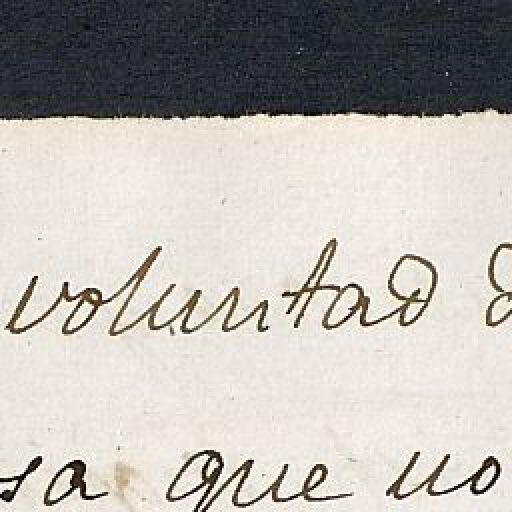 voluntad d
sa que no